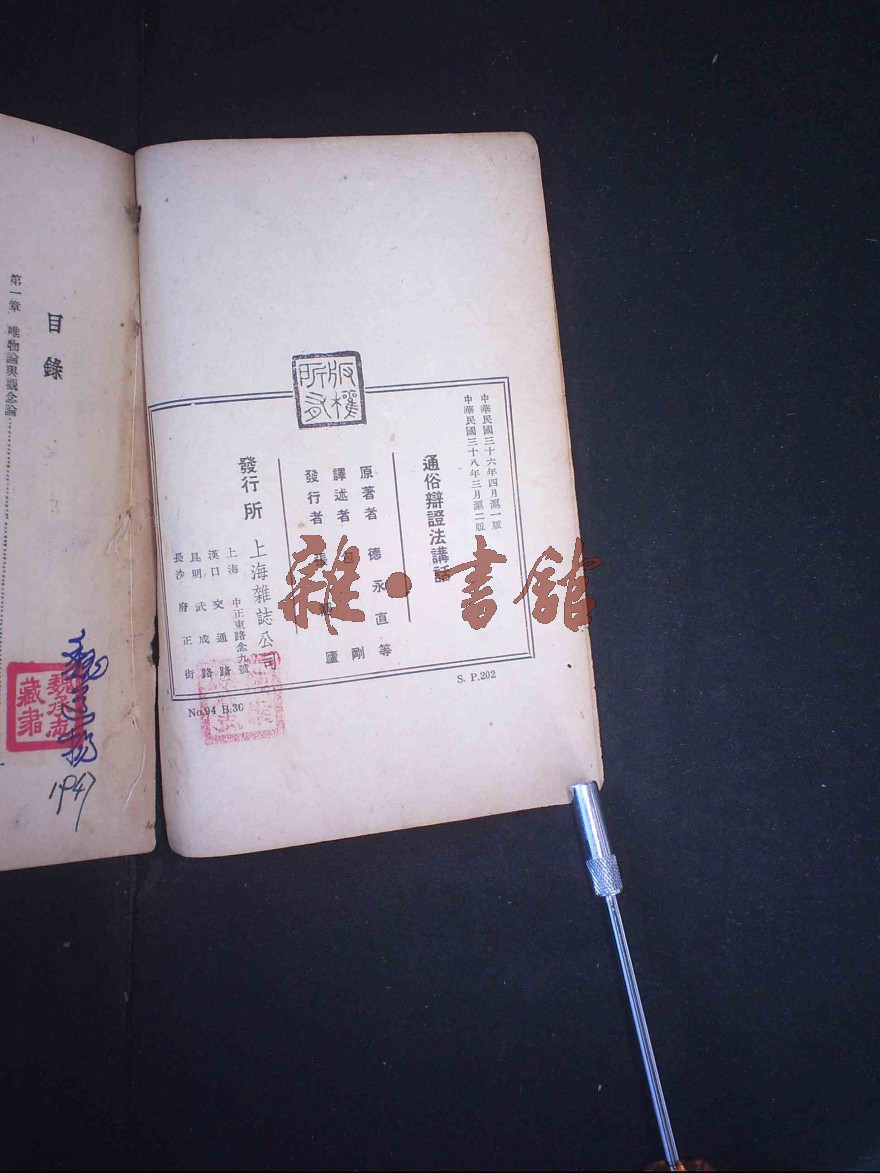 中華民國三十六年四月滬一版
中華民國三十八年三月滬二版
通俗辯證法講話
原著者 德永直等
譯述者 包剛
發行者 張廬
發行所 上海雜誌公司
上海 中正東路念九號
漢口 交通路
昆明 武成路
長沙 府正街
版權所有
S. P.202
No.94 B.36
目錄
第一章 唯物論與觀念論
魏承志
藏書
1947
雜·書館